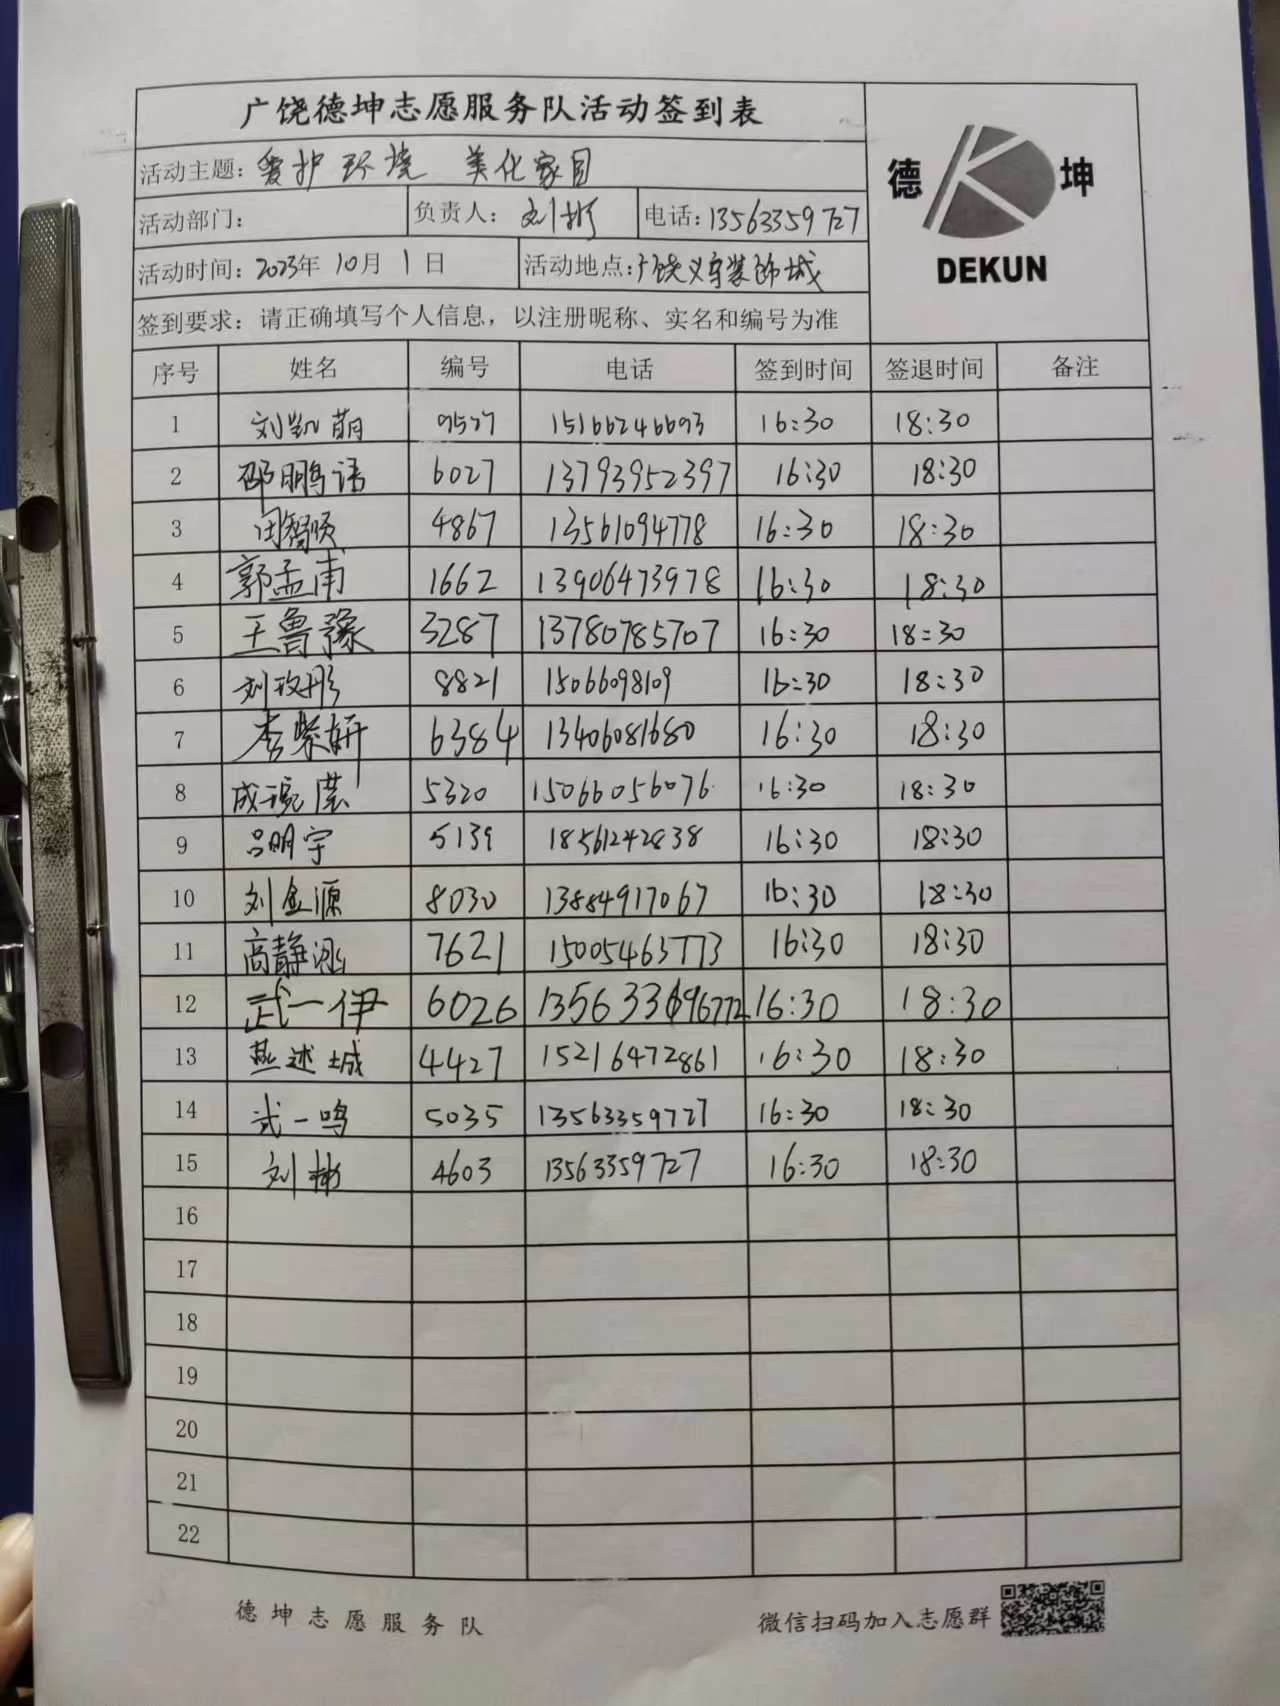 广饶德坤志愿服务队活动签到表
德 坤
DEKUN
活动主题：爱护环境 美化家园
活动部门： 负责人：刘彬 电话：13563359727
活动时间：2023年 10月 1日 活动地点：广饶义宇装饰城
签到要求：请正确填写个人信息，以注册昵称、实名和编号为准
序号 姓名 编号 电话 签到时间 签退时间 备注
1 刘凯萌 9577 15166246693 16:30 18:30
2 邵鹏语 6027 13793952397 16:30 18:30
3 闫智顺 4867 13561094778 16:30 18:30
4 郭孟甫 1662 13906473978 16:30 18:30
5 王鲁豫 3287 13780785707 16:30 18:30
6 刘玟彤 8821 15066098109 16:30 18:30
7 李紫妍 6384 13406081680 16:30 18:30
8 成琬莹 5320 15066056076 16:30 18:30
9 吕明宇 5139 18561242838 16:30 18:30
10 刘金源 8030 13884917067 16:30 18:30
11 高静 7621 15005463773 16:30 18:30
12 武一伊 6026 16:30 18:30
13 燕述城 4427 15216472861 16:30 18:30
14 武一鸣 5035 13563359727 16:30 18:30
15 刘彬 4603 13563359727 16:30 18:30
16
17
18
19
20
21
22
德坤志愿服务队 微信扫码加入志愿群